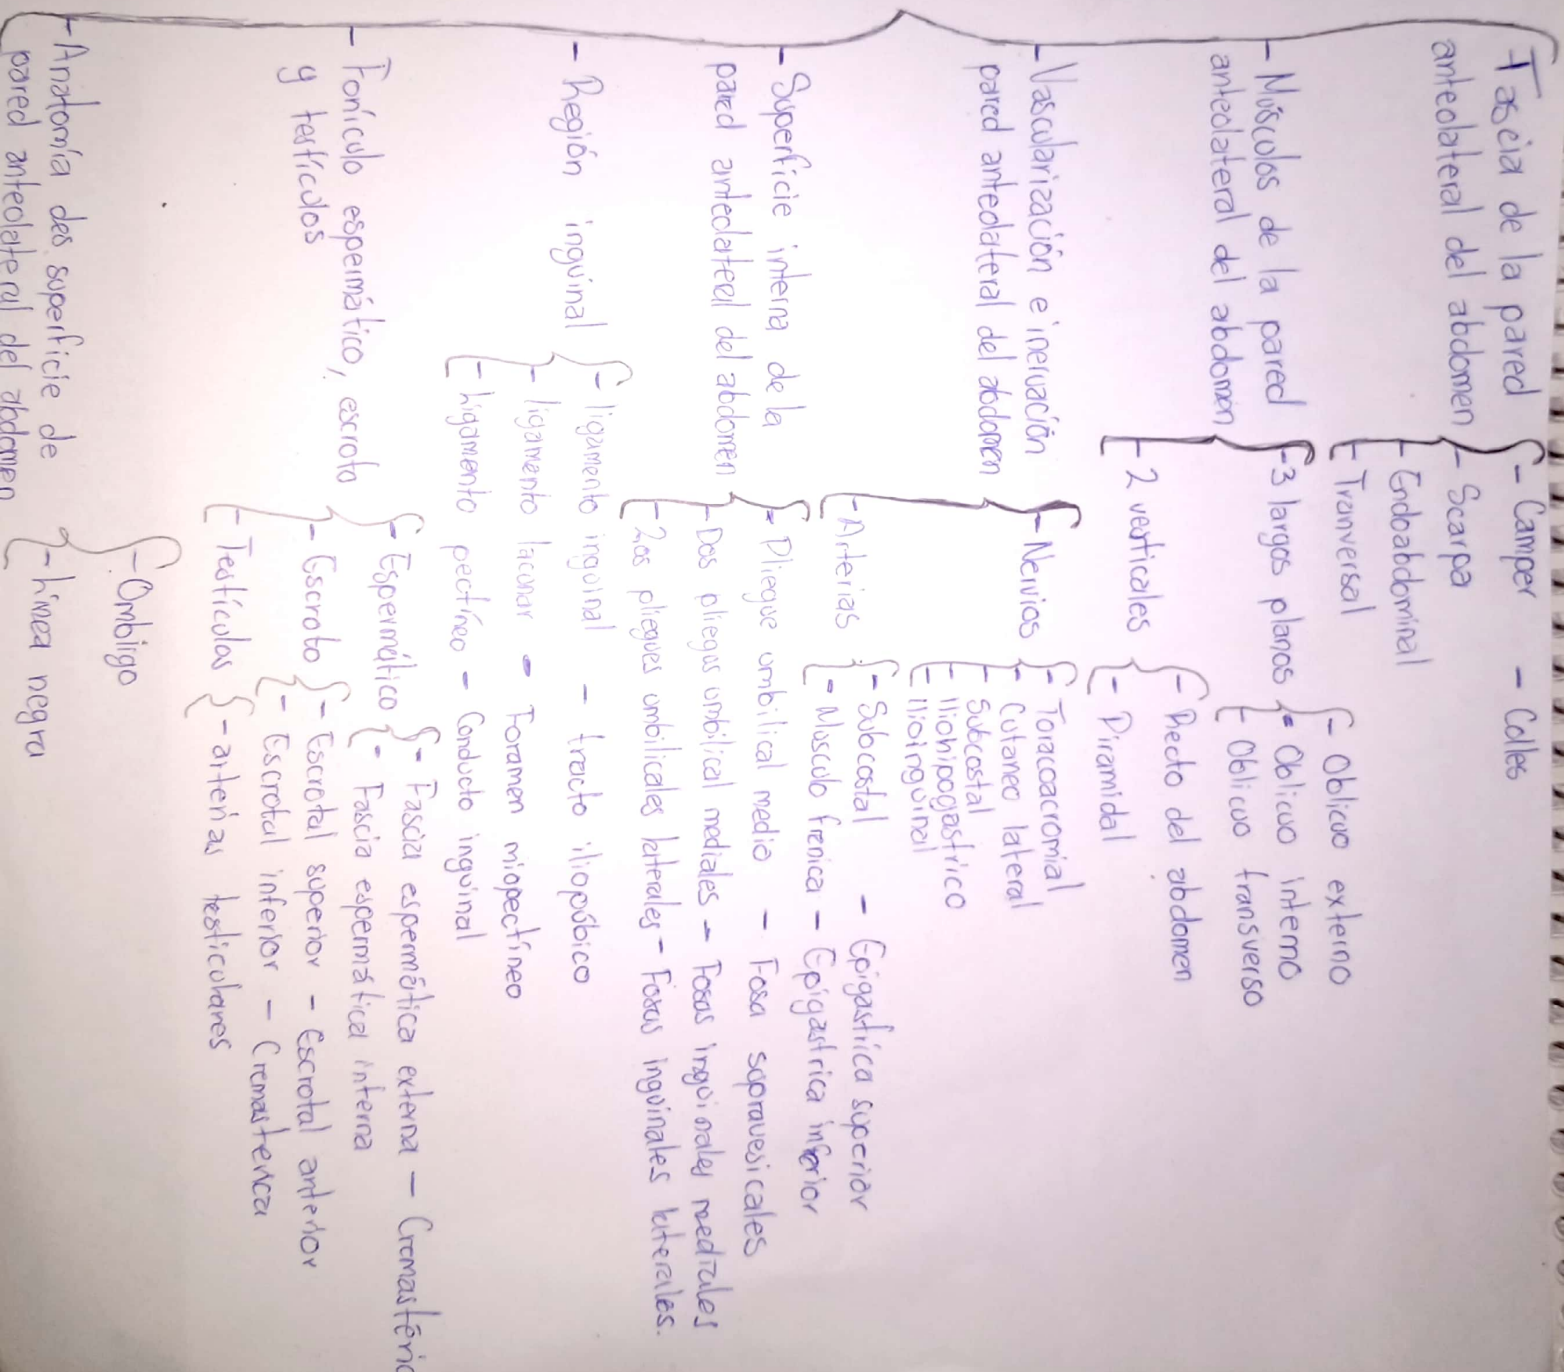 Fascia de la pared
anteolateral del abdomen
- Camper - Colles
- Scarpa
- Endoabdominal
- Tranversal
- Músculos de la pared
anteolateral del abdomen
- 3 largos planos
- Oblicuo externo
- Oblicuo interno
- Oblicuo transverso
- 2 verticales
- Recto del abdomen
- Piramidal
- Vascularización e inervación
pared anteolateral del abdomen
- Nervios
- Toracoacromial
- Cutaneo lateral
- Subcostal
- Iliohipogastrico
- Ilioinguinal
- Arterias
- Subcostal - Epigastrica superior
- Musculo frenica - Epigastrica inferior
- Superficie interna de la
pared anteolateral del abdomen
- Pliegue umbilical medio - Fosa supravesicales
- Dos pliegus umbilical mediales - Fosas inguinales mediales
- 2os pliegues umbilicales laterales - Fosas inguinales laterales.
- Región inguinal
- ligamento inguinal - tracto iliopúbico
- ligamento lacunar - Foramen miopectíneo
- ligamento pectíneo - Conducto inguinal
- Fonículo espermático, escroto
y testículos
- Espermático
- Fascia espermática externa - Cremastéric
- Fascia espermática interna
- Escroto
- Escrotal superior - Escrotal anterior
- Escrotal inferior - Cremasterica
- Testículos
- arterias testiculares
- Anatomía des superficie de
pared anteolateral del abdomen
- Ombligo
- Línea negra